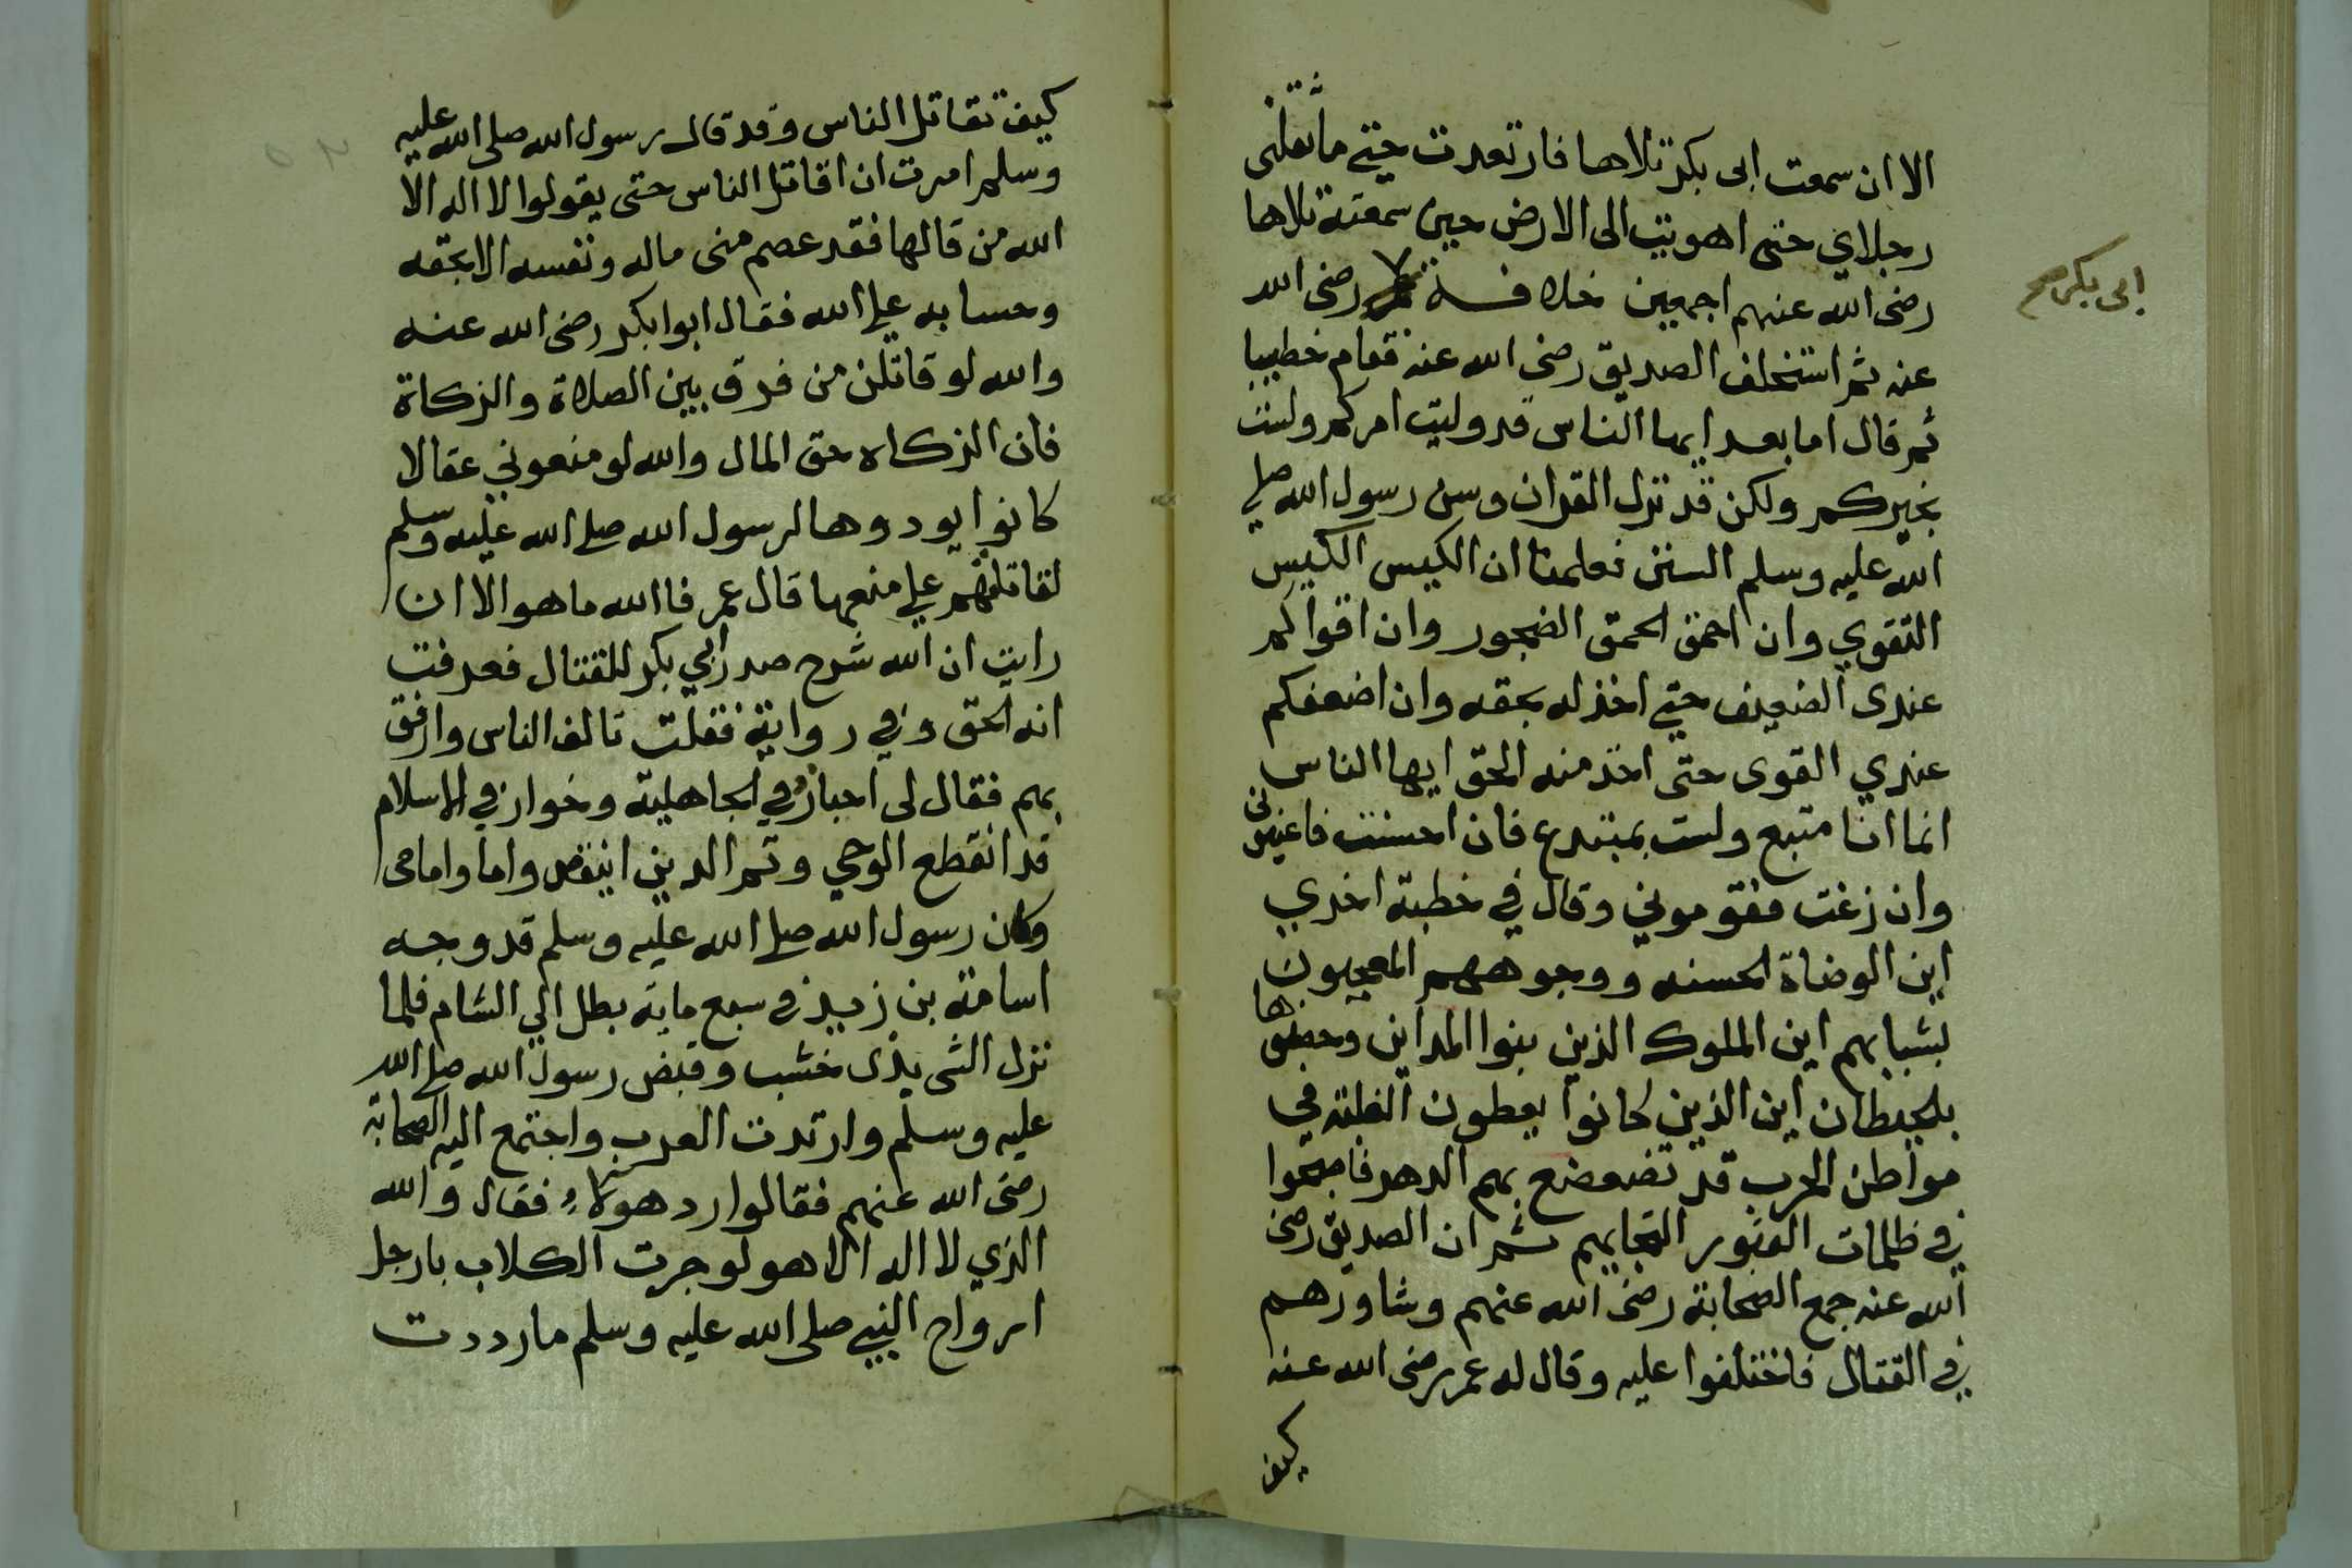 الا ان سمعت ابى بكر تلاها فارتعدت حتى ما تقلنى
رجلاي حتى اهويت الى الارض حين سمعته تلاها
رضى الله عنهم اجمعين خلافة رضى الله
ابى بكر صح
عنه ثم استخلف الصديق رضى الله عنه فقام خطيبا
ثم قال اما بعد ايها الناس قد وليت امركم ولست
بخيركم ولكن قد نزل القران وسن رسول الله صلى
الله عليه وسلم السنن فعلمنا ان الكيس الكيس
التقوي وان احمق الحمق الفجور وان اقواكم
عندى الضعيف حتى اخذ له بحقه وان اضعفكم
عندي القوى حتى اخذ منه الحق ايها الناس
انما انا متبع ولست بمبتدع فان احسنت فاعينونى
وان زغت فقوموني وقال في خطبة اخري
اين الوضاة الحسنه ووجوههم المعجبون
بشبابهم اين الملوك الذين بنوا المداين وحصنوها
بالحيطان اين الذين كانوا يعطون الغلبة في
مواطن الحرب قد تضعضع بهم الدهر فاصبحوا
في ظلمات القبور ثم ان الصديق رضى
الله عنه جمع الصحابة رضى الله عنهم وشاورهم
في القتال فاختلفوا عليه وقال له عمر رضى الله عنه
كيف
كيف تقاتل الناس وقد قال رسول الله صلى الله عليه
وسلم امرت ان اقاتل الناس حتى يقولوا لا اله الا
الله من قالها فقد عصم منى ماله ونفسه الا بحقه
وحسابه علي الله فقال ابوا بكر رضى الله عنه
والله لو قاتلن من فرق بين الصلاة والزكاة
فان الزكاه حق المال والله لو منعوني عقالا
كانوا يودوها لرسول الله صلي الله عليه وسلم
لقاتلتهم علي منعها قال عمر فا الله ما هو الا ان
رايت ان الله شرح صدر ابي بكر للقتال فعرفت
انه الحق وفي رواية فقلت تالف الناس وارفق
بهم فقال لى اجبار في الجاهلية وخوار في الاسلام
قد انقطع الوحي وتم الدين اينقص واما واما حى
وكان رسول الله صلي الله عليه وسلم قد وجه
اسامة بن زيد في سبع ماية بطل الي الشام فلما
نزل الشى بذى خشب وقبض رسول الله صلي الله
عليه وسلم وارتدت العرب واجتمع اليه الصحابة
رضى الله عنهم فقالوا رد هولاء فقال والله
الذي لا اله الا هو لو جرت الكلاب بارجل
ازواج النبي صلى الله عليه وسلم ما رددت